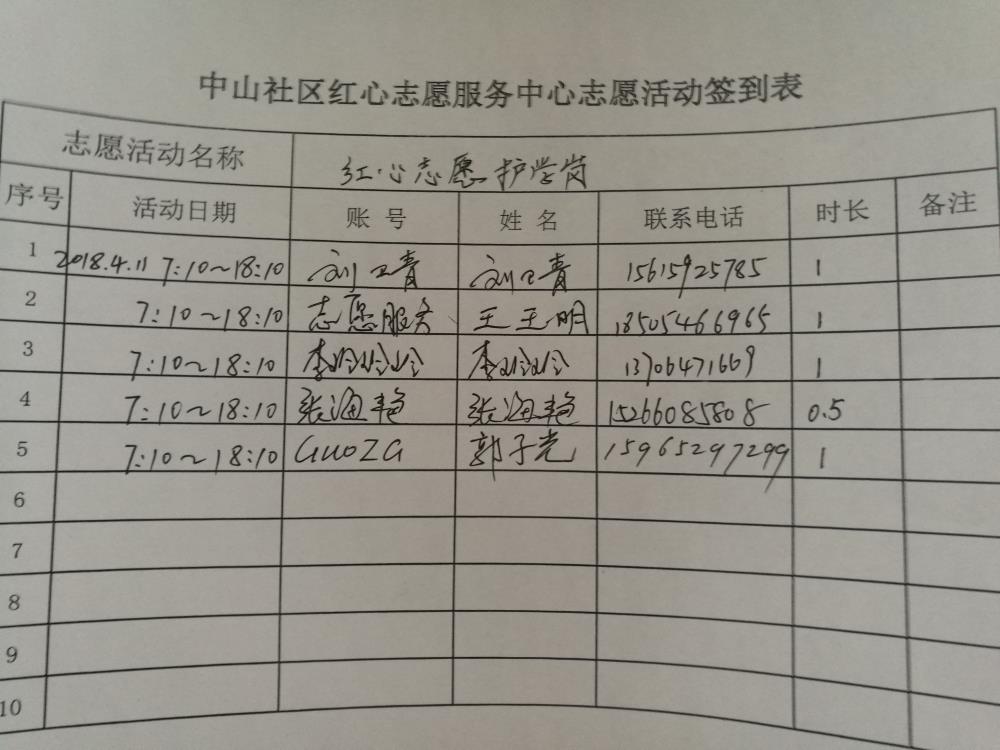 中山社区红心志愿服务中心志愿活动签到表
志愿活动名称 红心志愿护学岗
序号 活动日期 账号 姓名 联系电话 时长 备注
1 2018.4.11 7:10~18:10 刘卫青 刘卫青 15615925785 1
2 7:10~18:10 志愿服务 王玉明 18505466965 1
3 7:10~18:10 李玲玲 李玲玲 13706471669 1
4 7:10~18:10 张海艳 张海艳 15266085808 0.5
5 7:10~18:10 GUOZG 郭子光 15965297299 1
6
7
8
9
10